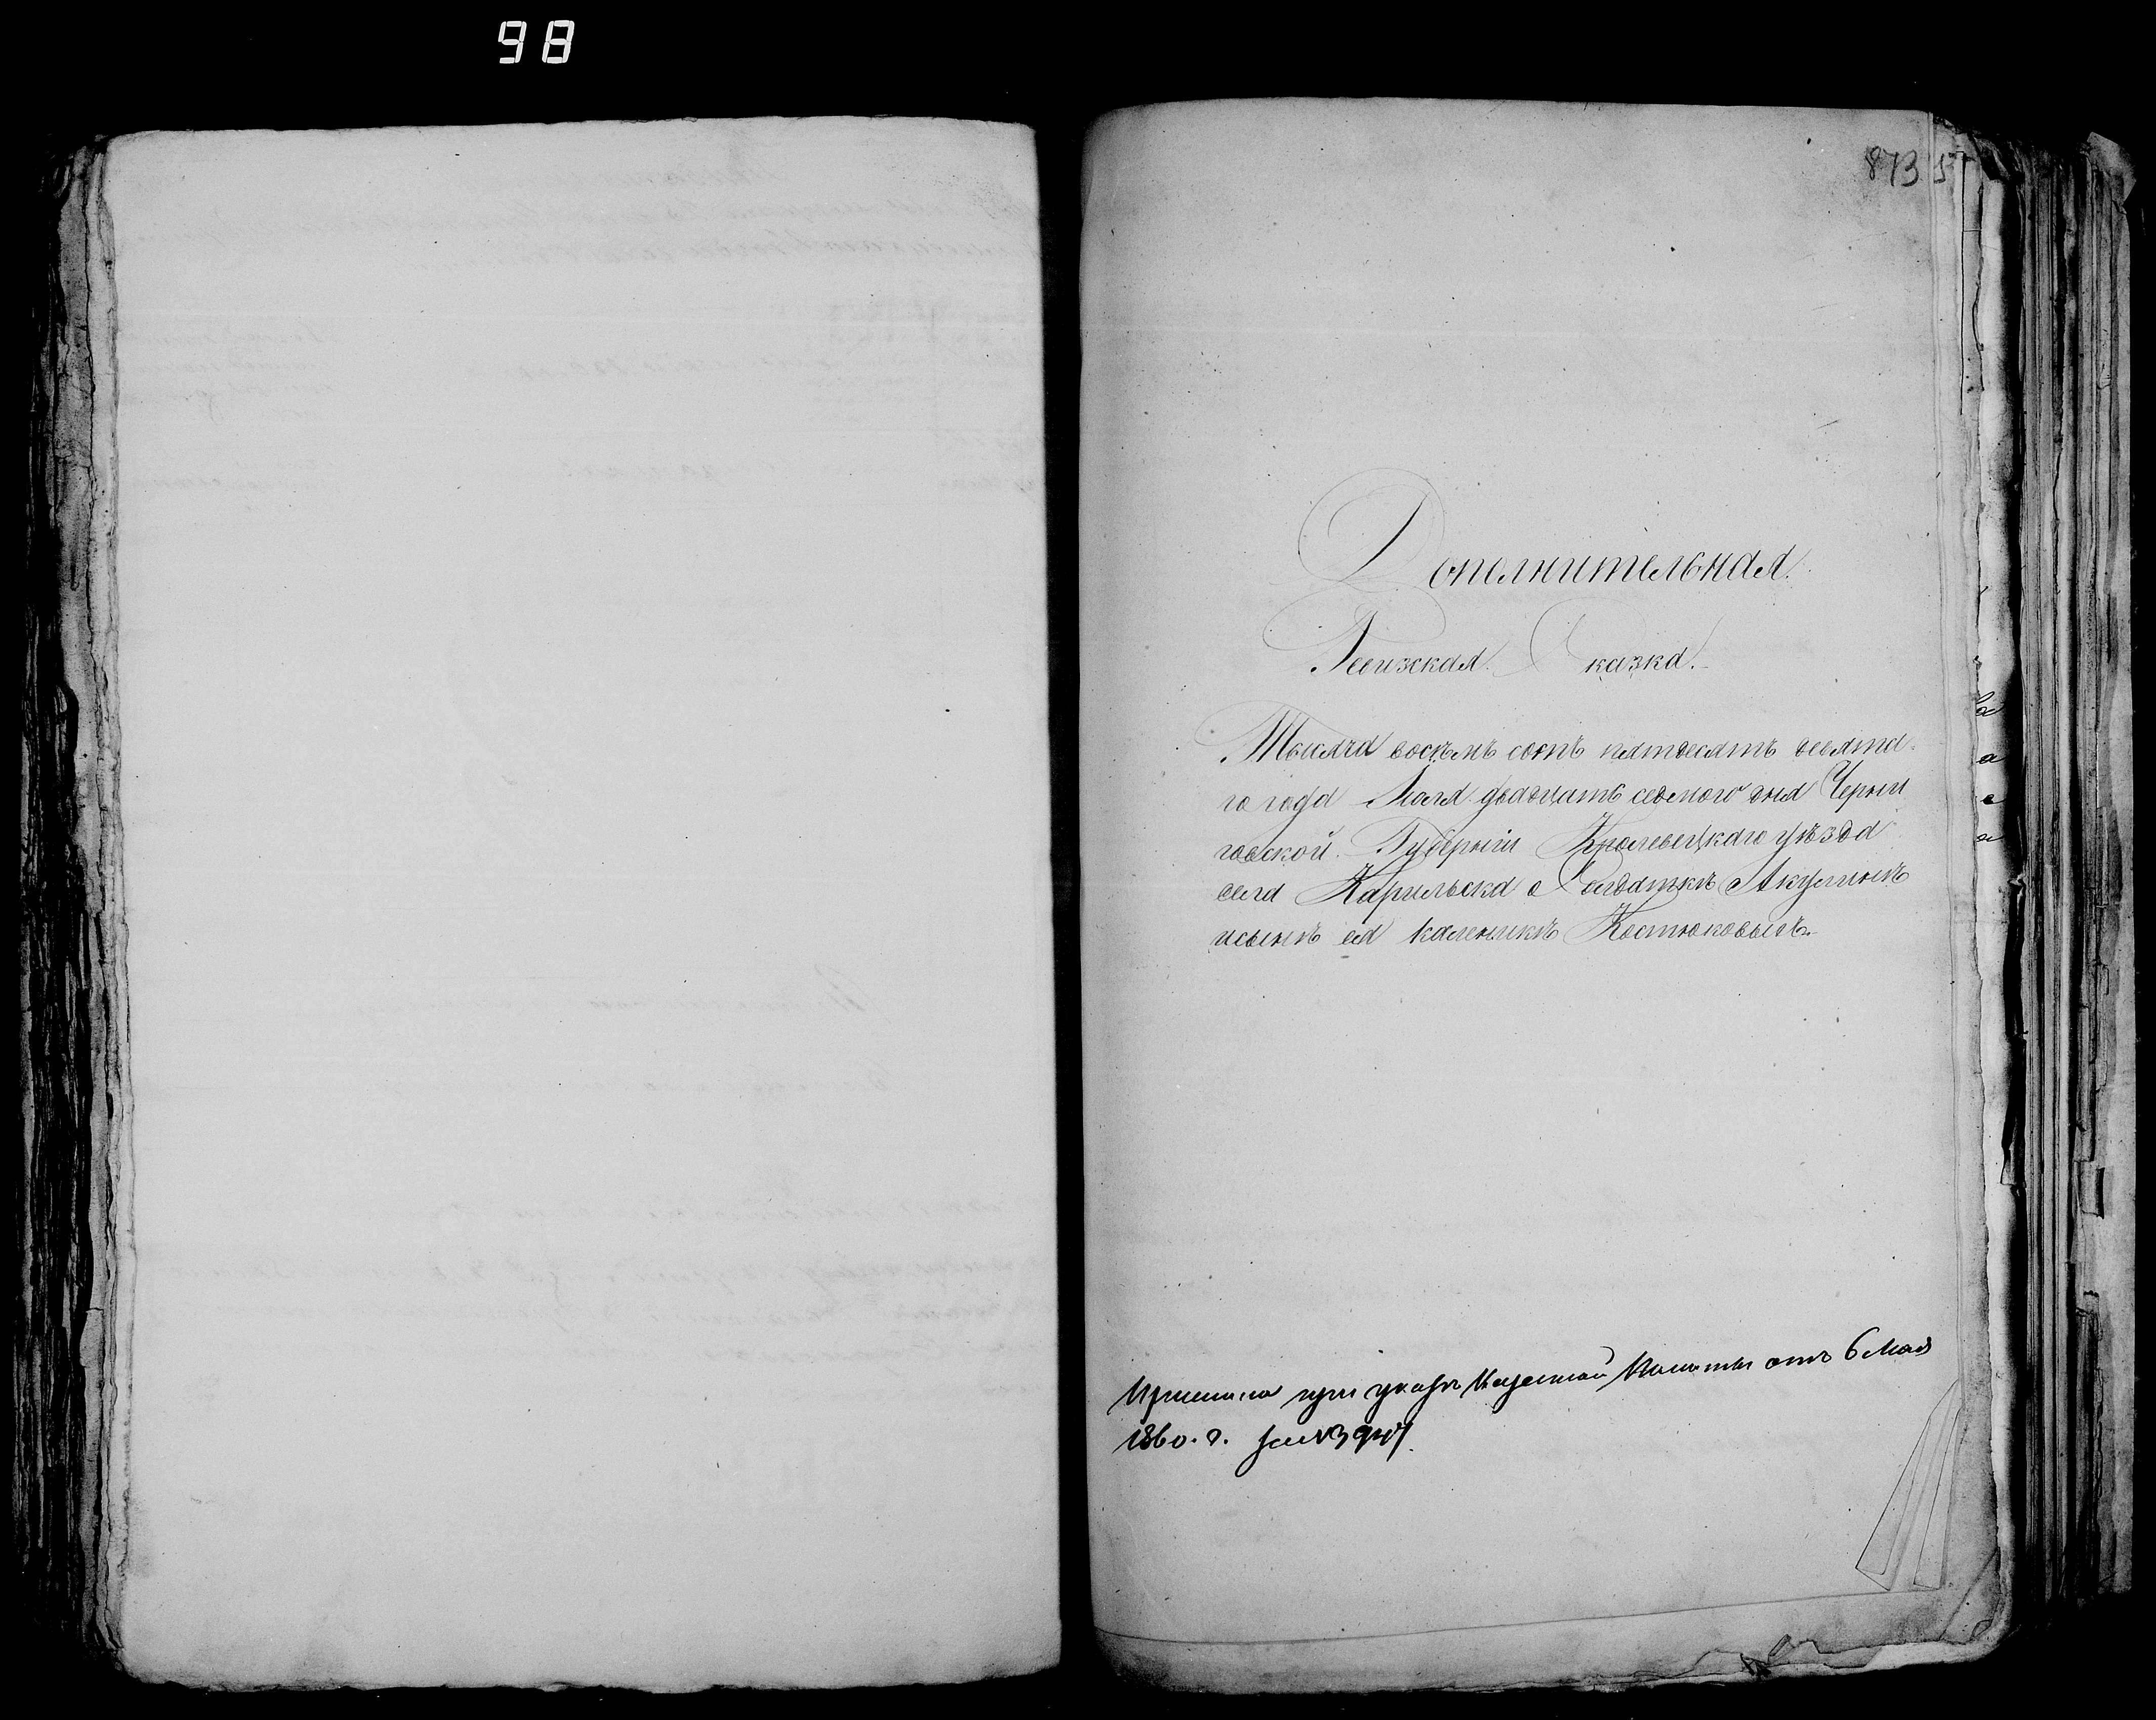 98
873
Дополнительная
Ревизская Сказка.
Тысяча восемь сотъ пятдесятъ девята-
го года Мая двадцать седмого дня Черни
говской Губерніи Кролевецкаго уѣзда
села Карильска о Солдаткѣ Акулинѣ
и сынѣ ея каленикѣ Костюковыхъ.
при указѣ Казенной Палаты отъ 6 Мая
1860. г. за №